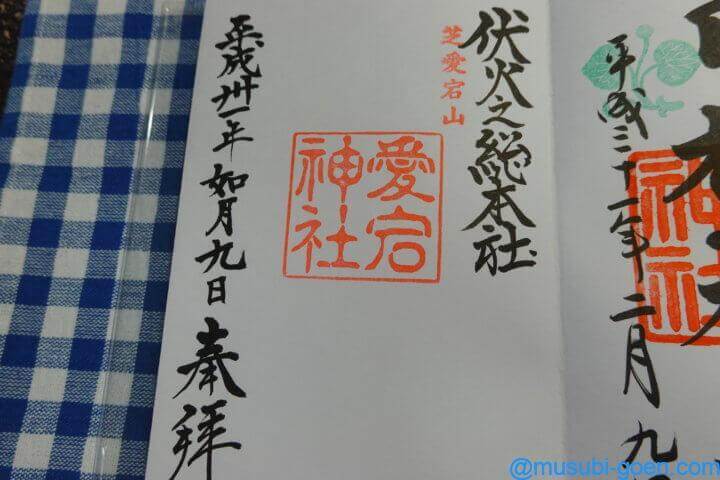 平成三十一年二月九
神社
伏火之総本社
芝愛宕山
愛宕
神社
平成卅一年如月九日奉拝
@musubi-goen.com